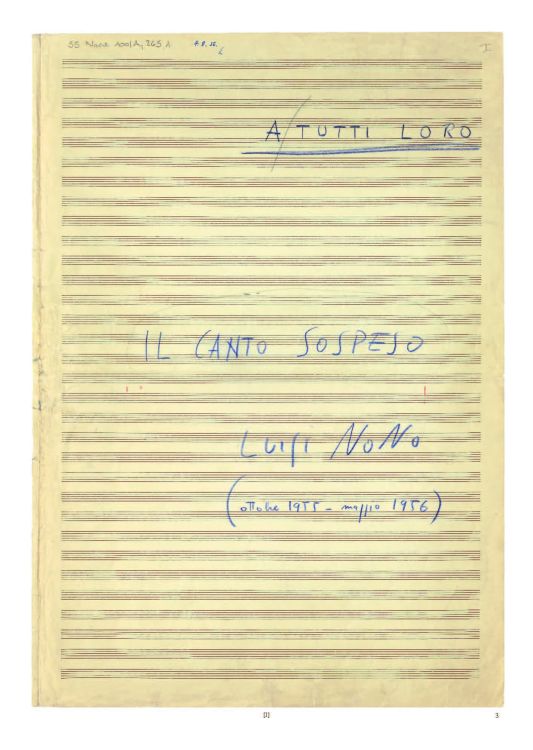 SS Nono 1001A; 265 A
I
A TUTTI LORO
IL CANTO SOSPESO
LUIGI NONO
(ottobre 1955 - maggio 1956)
[1]
3